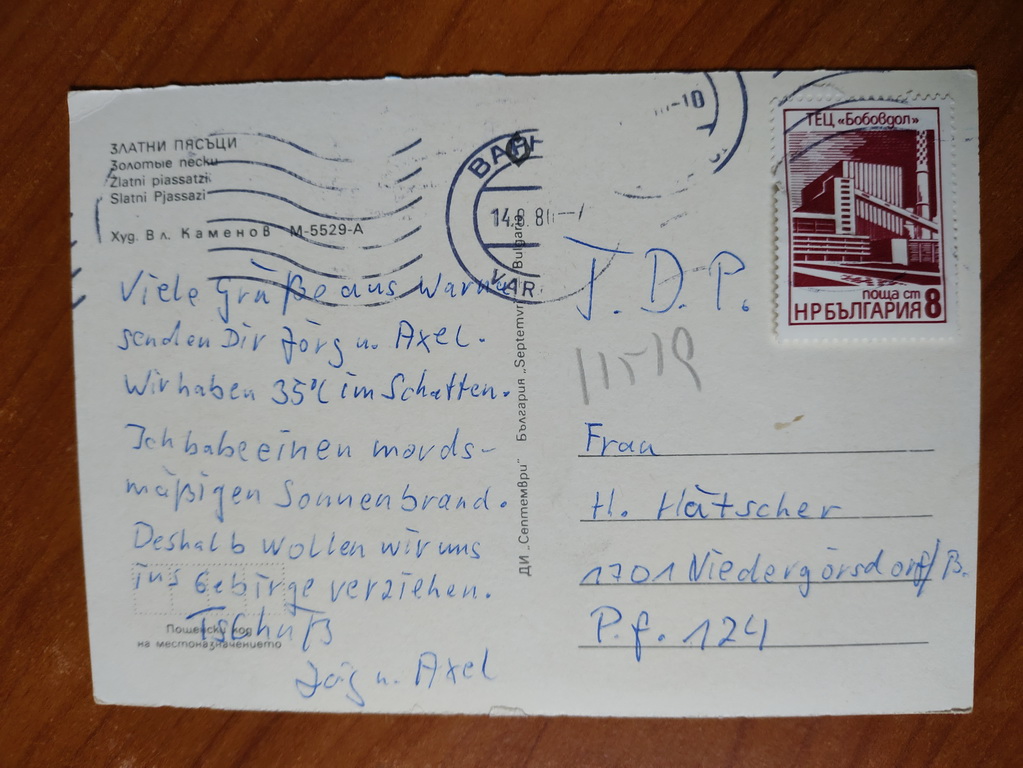 ЗЛАТНИ ПЯСЪЦИ
Золотые пески
Zlatni piassatzi
Slatni Pjassazi
Худ. Вл. Каменов М-5529-А
Viele Grüße aus Warna
senden Dir Jörg u. Axel.
Wir haben 35°C im Schatten.
Ich habe einen mords-
mäßigen Sonnenbrand.
Deshalb wollen wir uns
ins Gebirge verziehen.
Tschüß
Jörg u. Axel
Пощенски код
на местоназначението
ДИ „Септември" България „Septemvri" Bulgaria
ВАР
14.8.80
VAR
-10
ТЕЦ «Бобовдол»
поща ст 8
НР БЪЛГАРИЯ
D.P.
11519
Frau
H. Hätscher
1701 Niedergörsdorf/B.
P.f. 124